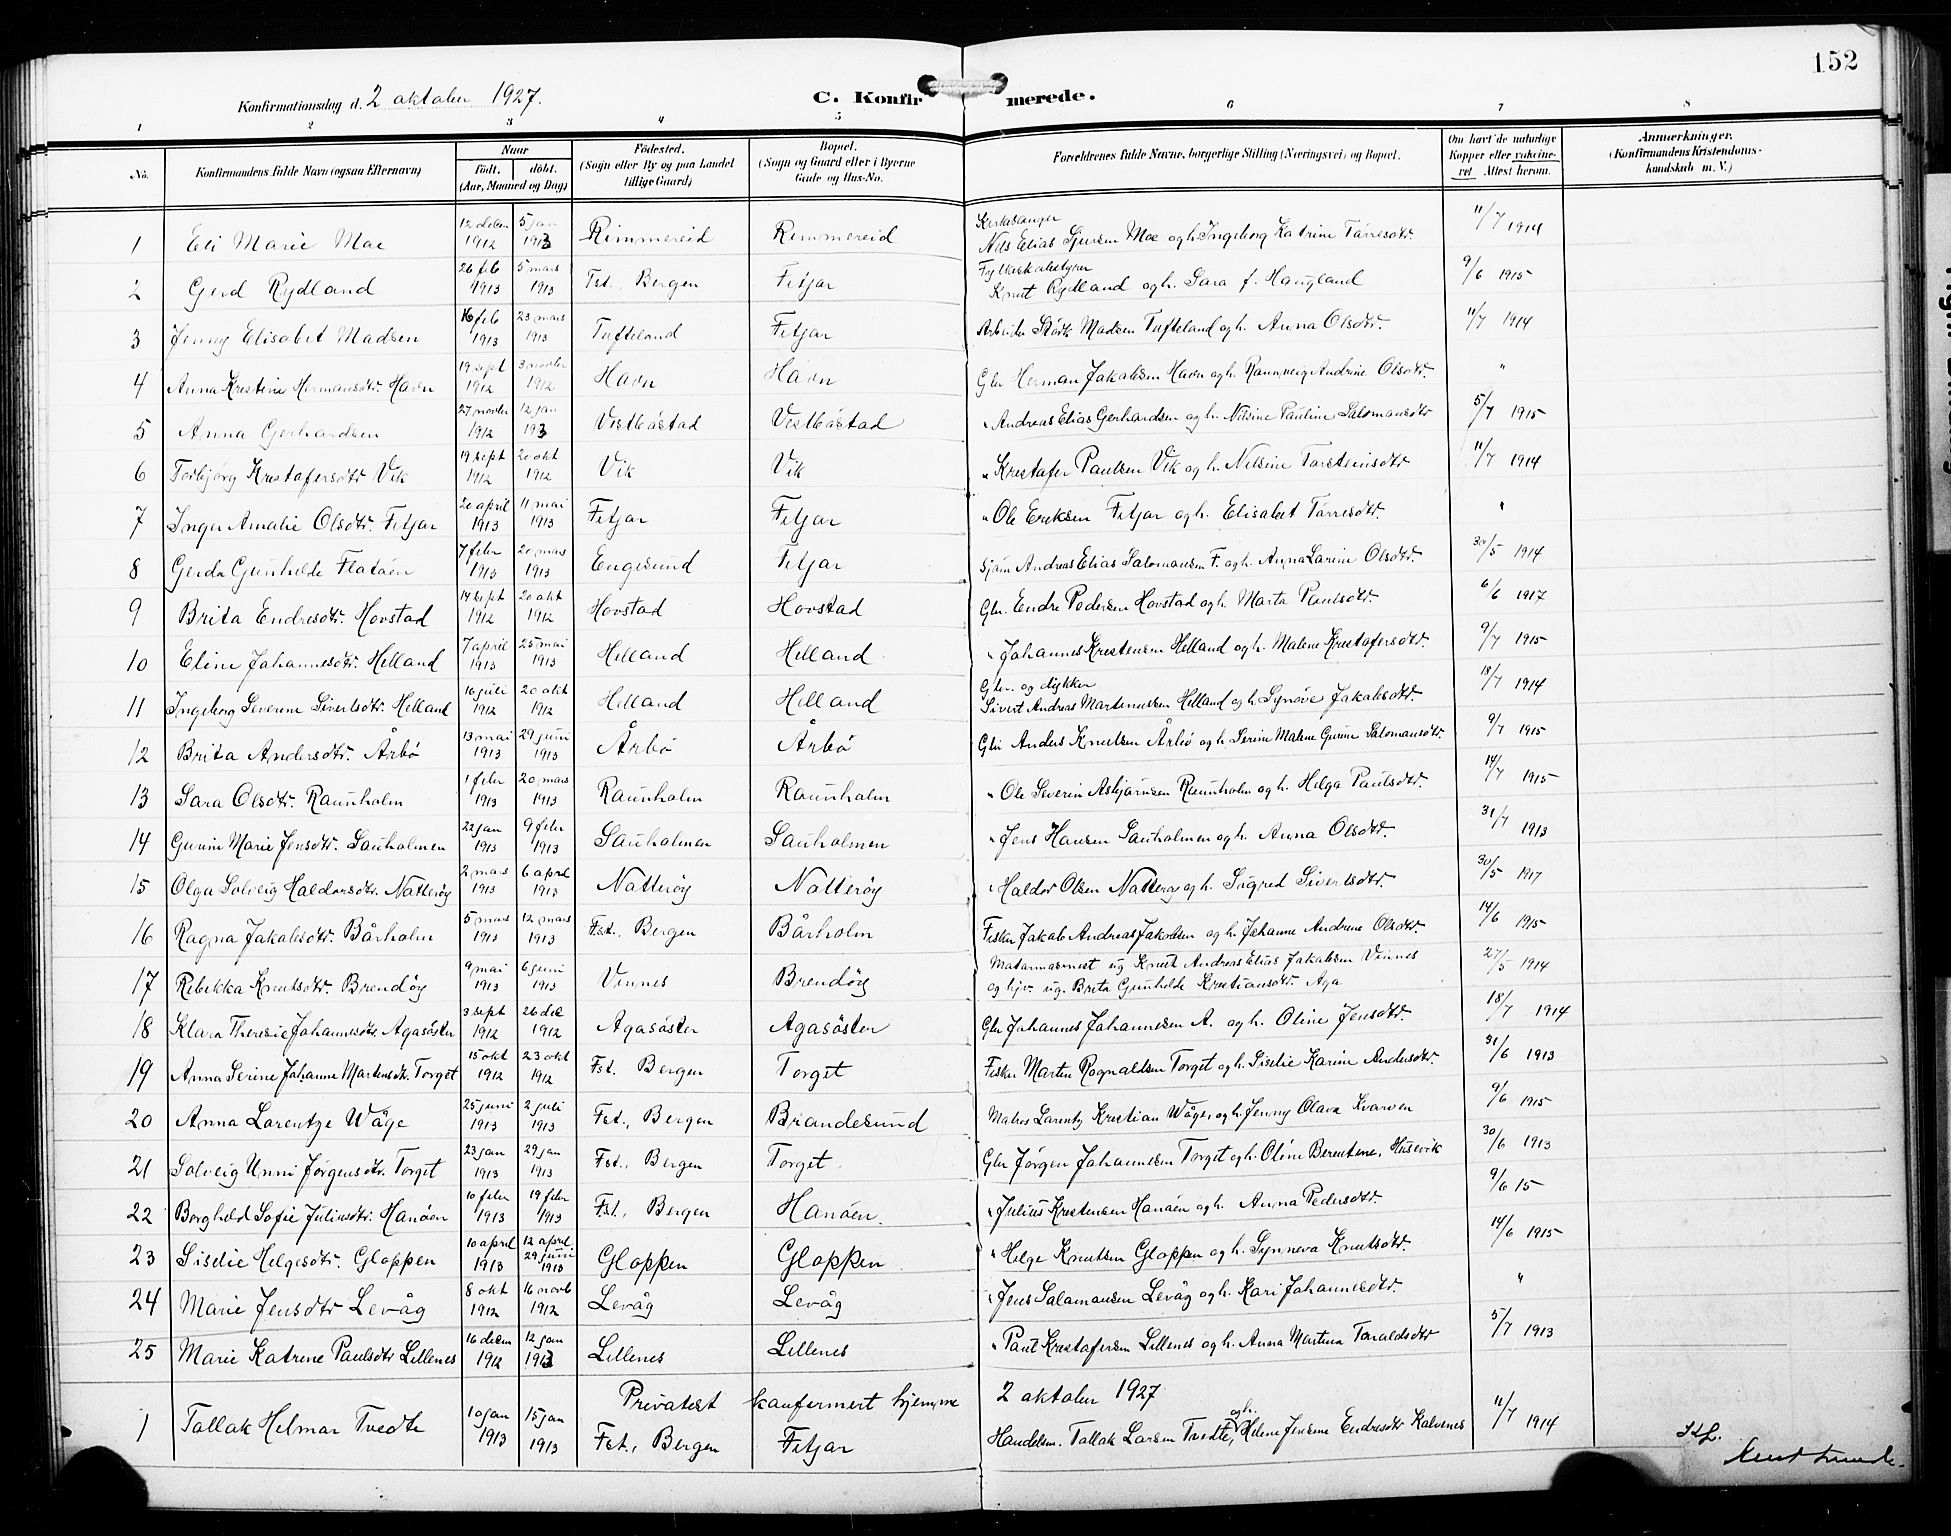 152
Konfirmationsdag d. 2 oktober 1927.
C. Konfirmerede.
1 2 3 4 5 6 7 8
No. Konfirmandens fulde Navn (ogsaa Efternavn) Naar födt. döbt. (Aar, Maaned og Dag) Födested. (Sogn eller By og paa Landet tillige Gaard) Bopæl. (Sogn og Gaard eller i Byerne Gade og Hus-No. Forældrenes fulde Navne, borgerlige Stilling (Næringsvei) og Bopæl. Om havt de naturlige Kopper eller vakcineret Attest herom. Anmærkninger. (Konfirmandens Kristendomskundskab m. V.)
1 Eli Marie Moe 12 decbr 1912 5 jan 1913 Rimmereid Rimmereid Kirkesanger Nils Elias Sjursen Moe og h. Ingeborg Katrine Torresdtr. 11/7 1914
2 Gerd Rydland 26 feb 1913 5 mars 1913 Fst., Bergen Fitjar Fylkesskolestyrer Knut Rydland og h. Sara f. Haugland 9/6 1915
3 Jenny Elisabet Madsen 16 feb 1913 23 mars 1913 Tufteland Fitjar Arbeider Störk Madsen Tufteland og h. Anna Olsdtr. 11/7 1914
4 Anna Kristine Hermansdtr. Havn 19 sept 1912 3 novbr 1912 Havn Havn Gbr Herman Jakobsen Havn og h. Rannveig Andrine Olsdtr. "
5 Anna Gerhardsen 27 novbr 1912 12 jan 1913 Vestböstad Vestböstad " Andreas Elias Gerhardsen og h. Nilsine Pauline Salomonsdtr 5/7 1915
6 Torbjörg Kristofersdtr Vik 19 sept 1912 20 okt 1912 Vik Vik " Kristofer Paulsen Vik og h. Nilsine Torsteinsdtr 11/7 1914
7 Inger Amalie Olsdtr. Fitjar 20 april 1913 11 mai 1913 Fitjar Fitjar " Ole Eriksen Fitjar og h. Elisabet Torresdtr. "
8 Gerda Gunhilde Flatöen 7 febr 1913 20 mars 1913 Engesund Fitjar Sjöm Andreas Elias Salomonsen F. og h. Anna Larine Olsdtr. 30/5 1914
9 Brita Endresdtr. Hovstad 14 sept 1912 20 okt 1912 Hovstad Hovstad Gbr. Endre Pedersen Hovstad og h. Marta Paulsdtr. 6/6 1917
10 Eline Johannesdtr. Helland 7 april 1913 25 mai 1913 Helland Helland " Johannes Kristensen Helland og h. Malene Kristofersdtr. 9/7 1915
11 Ingeborg Severine Sivertsdtr. Helland 16 juli 1912 20 okt 1912 Helland Helland Gbr. og dykker Sivert Andreas Martinussen Helland og h. Synöve Jakobsdtr. 18/7 1914
12 Brita Andersdtr. Årbö 13 mai 1913 29 juni 1913 Årbö Årbö Gbr Anders Knutsen Årbö og h. Serine Malene Gurine Salomonsdtr. 9/7 1915
13 Sara Olsdtr. Raunholm 1 febr 1913 20 mars 1913 Raunholm Raunholm " Ole Severin Asbjørnsen Raunholm og h. Helga Paulsdtr. 14/7 1915
14 Gurine Marie Jensdtr. Sauholmen 22 jan 1913 9 febr 1913 Sauholmen Sauholmen " Jens Hansen Sauholmen og h. Anna Olsdtr. 31/7 1913
15 Olga Solveig Haldorsdtr. Natteröy 2 mars 1913 6 april 1913 Natteröy Natteröy " Haldor Olsen Natteröy og h. Sigrid Sivertsdtr. 30/5 1917
16 Ragna Jakobsdtr. Bårholm 5 mars 1913 12 mars 1913 Fst., Bergen Bårholm Fisker Jakob Andreas Jakobsen og h. Johanne Andrine Olsdtr. 14/6 1915
17 Rebekka Knutsdtr. Brendöy 9 mai 1913 6 juni 1913 Vinnes Brendöy ug Knut Andreas Elias Jakobsen Vinnes og hjv. ug. Brita Gunhilde Kristiansdtr. Aga 27/5 1914
18 Klara Theresie Johannesdtr Agasöster 3 sept 1912 26 dec 1912 Agasöster Agasöster Gbr Johannes Johannesen A. og h. Oline Jensdtr. 18/7 1914
19 Anna Serine Johanne Martensdtr. Torget 15 okt 1912 23 okt 1912 Fst. Bergen Torget Fisker Martin Rognaldsen Torget og h. Siselie Karine Andersdtr. 31/6 1913
20 Anna Lorentze Wåge 25 juni 1913 2 juli 1913 Fst., Bergen Brandesund Matros Lorentz Kristian Wåge og h. Jenny Olava Kvarven 9/6 1915
21 Solveig Unni Jørgensdtr. Torget 23 jan 1913 29 jan 1913 Fst., Bergen Torget. Gbr Jørgen Johannesen Torget og h. Oline Berentine, Husevik 30/6 1913
22 Borghild Sofie Juliusdtr. Hanöen 10 febr 1913 19 febr 1913 Fst., Bergen Hanöen. " Julius Kristensen Hanöen og h. Anna Pedersdtr. 9/6 15
23 Siselie Helgesdtr. Gloppen 10 april 1913 12 april 29 juni 1913 Gloppen Gloppen " Helge Knutsen Gloppen og h. Synneva Knutsdtr. 14/6 1915
24 Marie Jensdtr Levåg 8 okt 1912 16 novb 1912 Levåg Levåg " Jens Salamonsen Levåg og h. Kari Johannesdtr. "
25 Marie Katrine Paulsdtr Lillenes 16 decem 1912 12 jan 1913 Lillenes Lillenes " Paul Kristofersen Lillenes og h. Anna Martina Toraldsdtr 5/7 1913
Privatist konfirmert hjemme 2 oktober 1927
1 Tallak Helmar Tvedte 10 jan 1913 15 jan 1913 Fst., Bergen Fitjar Handelsm. Tallak Larsen Tvedte, og h. Helene Jensine Endresdtr Kalvenes 11/7 1914
Knut